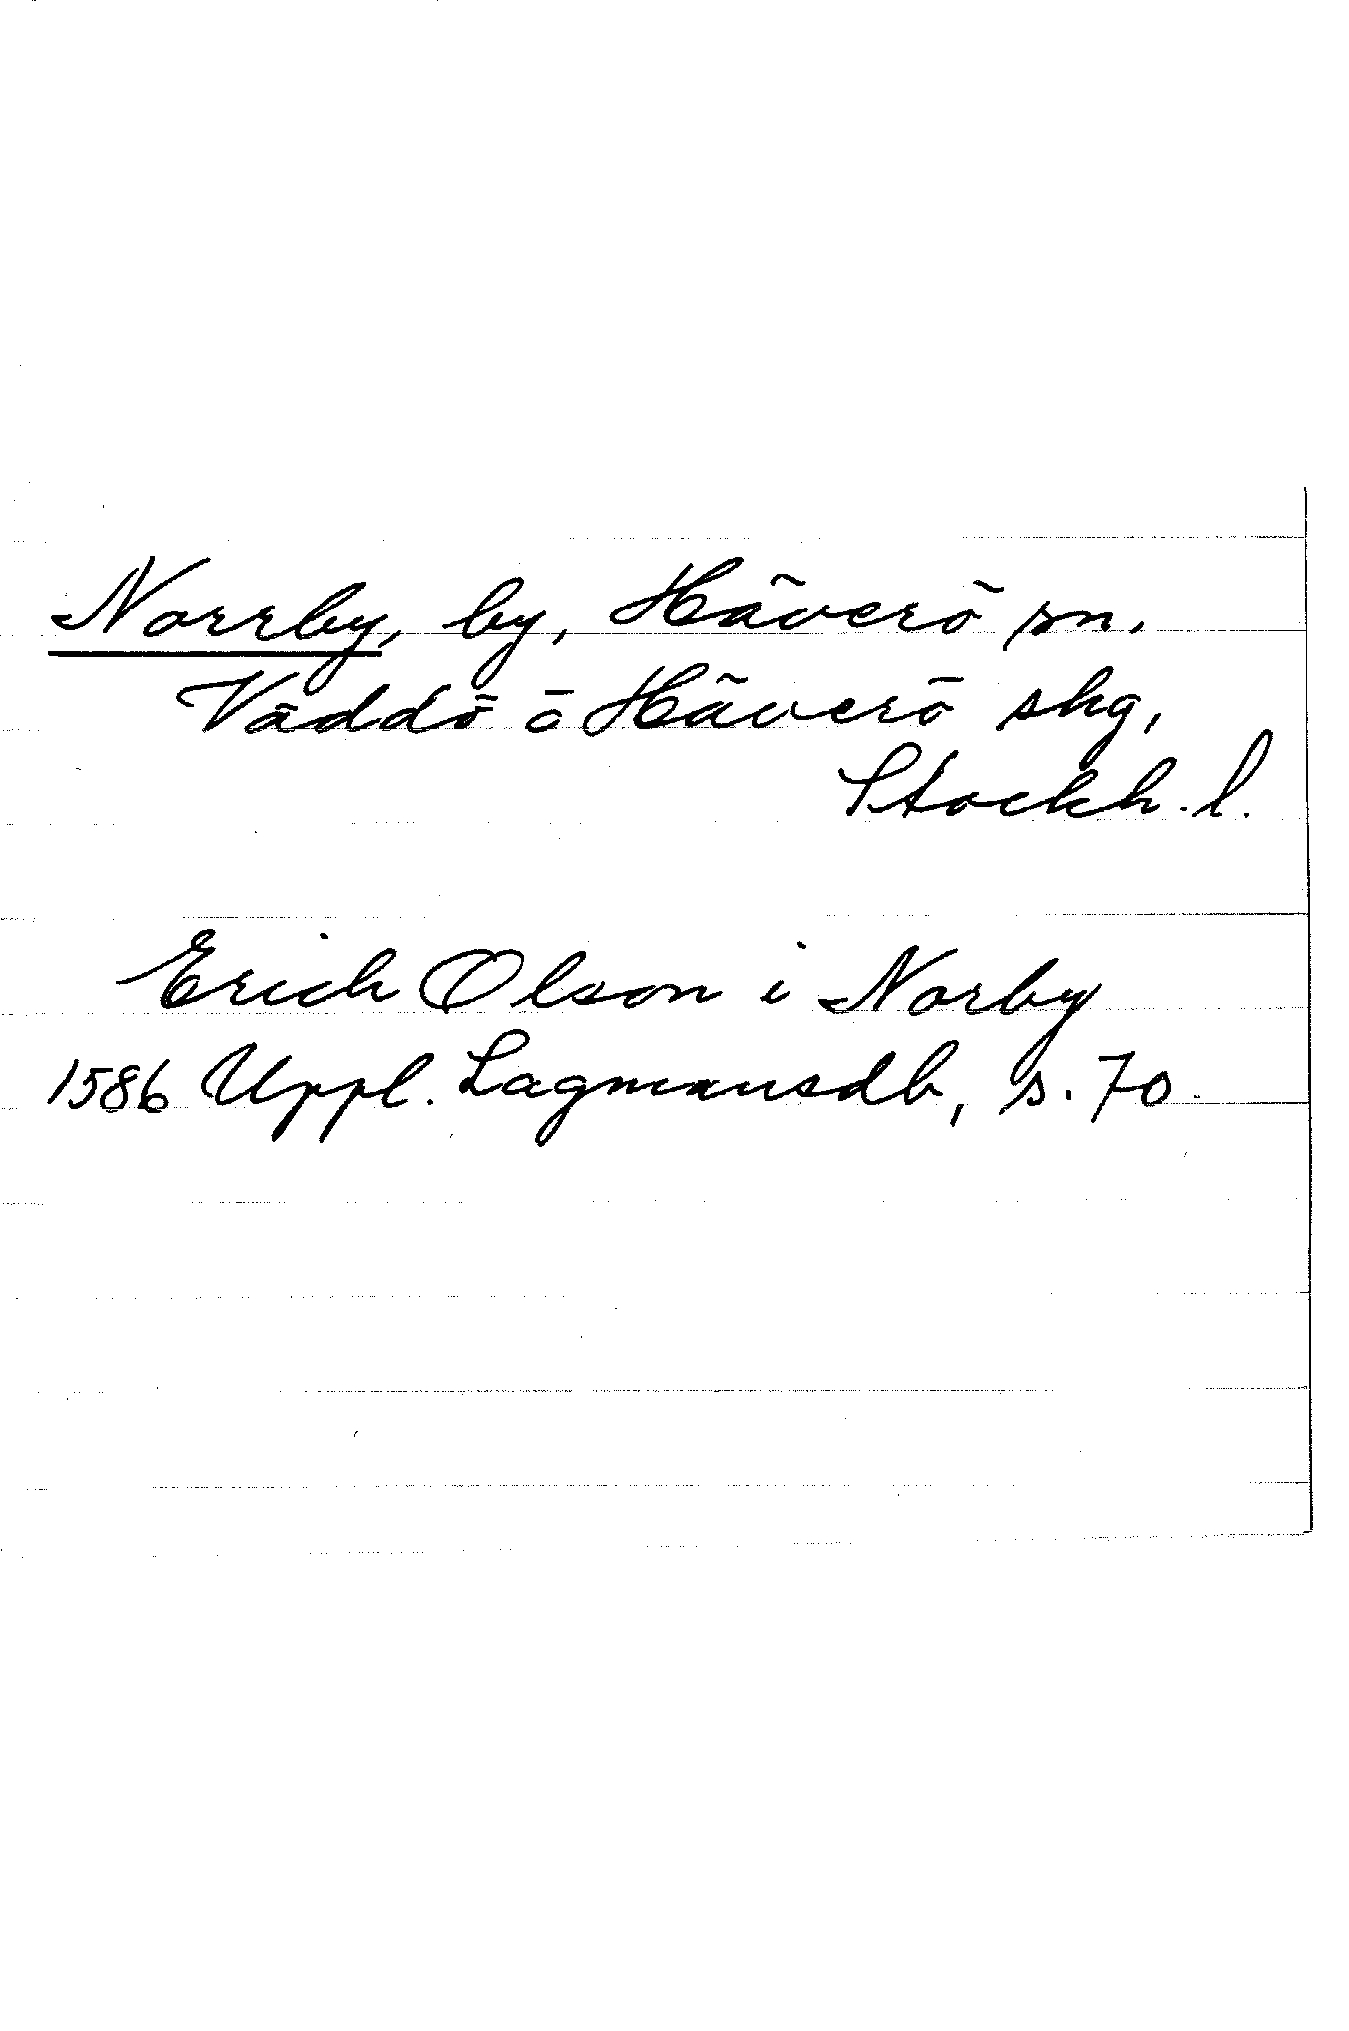 Norrby, by, Häverö sn.
Väddö o Häverö skg,
Stockh. l.
Erich Olson i Norby
1586 Uppl. Lagmansdb, s. 70.